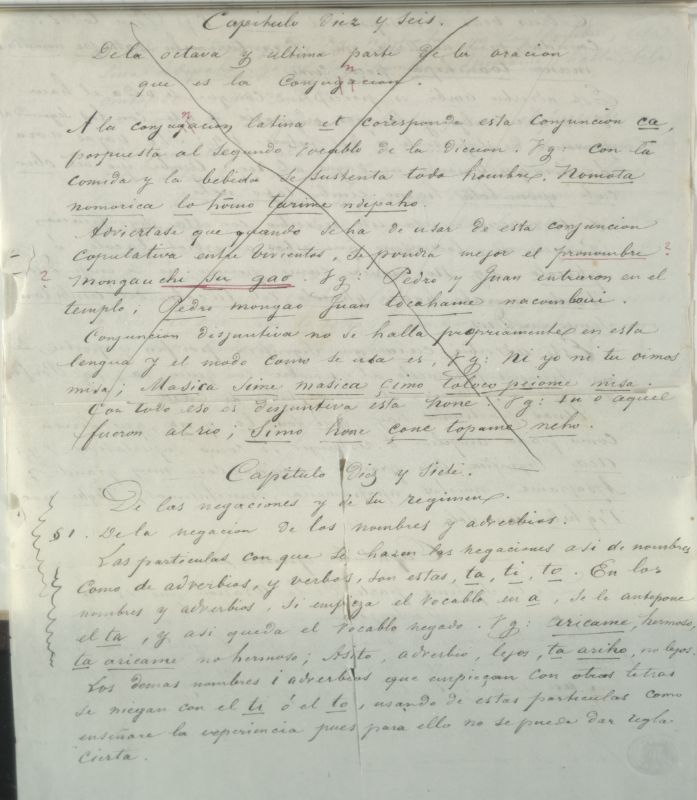 Capitulo Diez y Seis.
De la octava y ultima parte de la oracion
que es la Conjugacion.
n
A la conjugacion latina et coresponde esta Conjuncion ca,
porpuesta al segundo Vocablo de la diccion. Vg: con la
comida y la bebida se sustenta todo hombre. Nomota
nomorica lo homo tarime ndepaho.
Adviertase que quando se ha de usar de esta conjuncion
Copulativa entre Vivientes, se pondrá mejor el pronombre ?
2 mongauchi su gao. Vg: Pedro y Juan entraron en el
templo; Pedro mongao Juan tocahame nacomboui.
Conjuncion disjuntiva no se halla propriamente en esta
lengua y el modo como se usa es, Vg: Ni yo ni tu oimos
misa; Masica Sime masica çimo toloco peiome misa.
Con todo eso es disjuntiva esta Kone. Vg: tu ó aquel
fueron al rio; Simo Kone çone topame neho.
Capitulo Diez y Siete.
De las negaciones y de su regimen.
§ 1. De la negacion de los nombres y adverbios.
Las particulas con que se hazen las negaciones asi de nombres
Como de adverbios, y verbos, son estas, ta, ti, to. En los
nombres y adverbios, si empieza el Vocablo en a, se le antepone
el ta, y asi queda el Vocablo negado. Vg: aricame, hermoso,
ta aricame no hermoso; Asito, adverbio, lejos, ta ariho, no lejos.
Los demas nombres i adverbios que empieçan con otras letras
se niegan con el ti ó el to, usando de estas particulas como
enseñare la experiencia pues para ello no se puede dar regla
cierta.